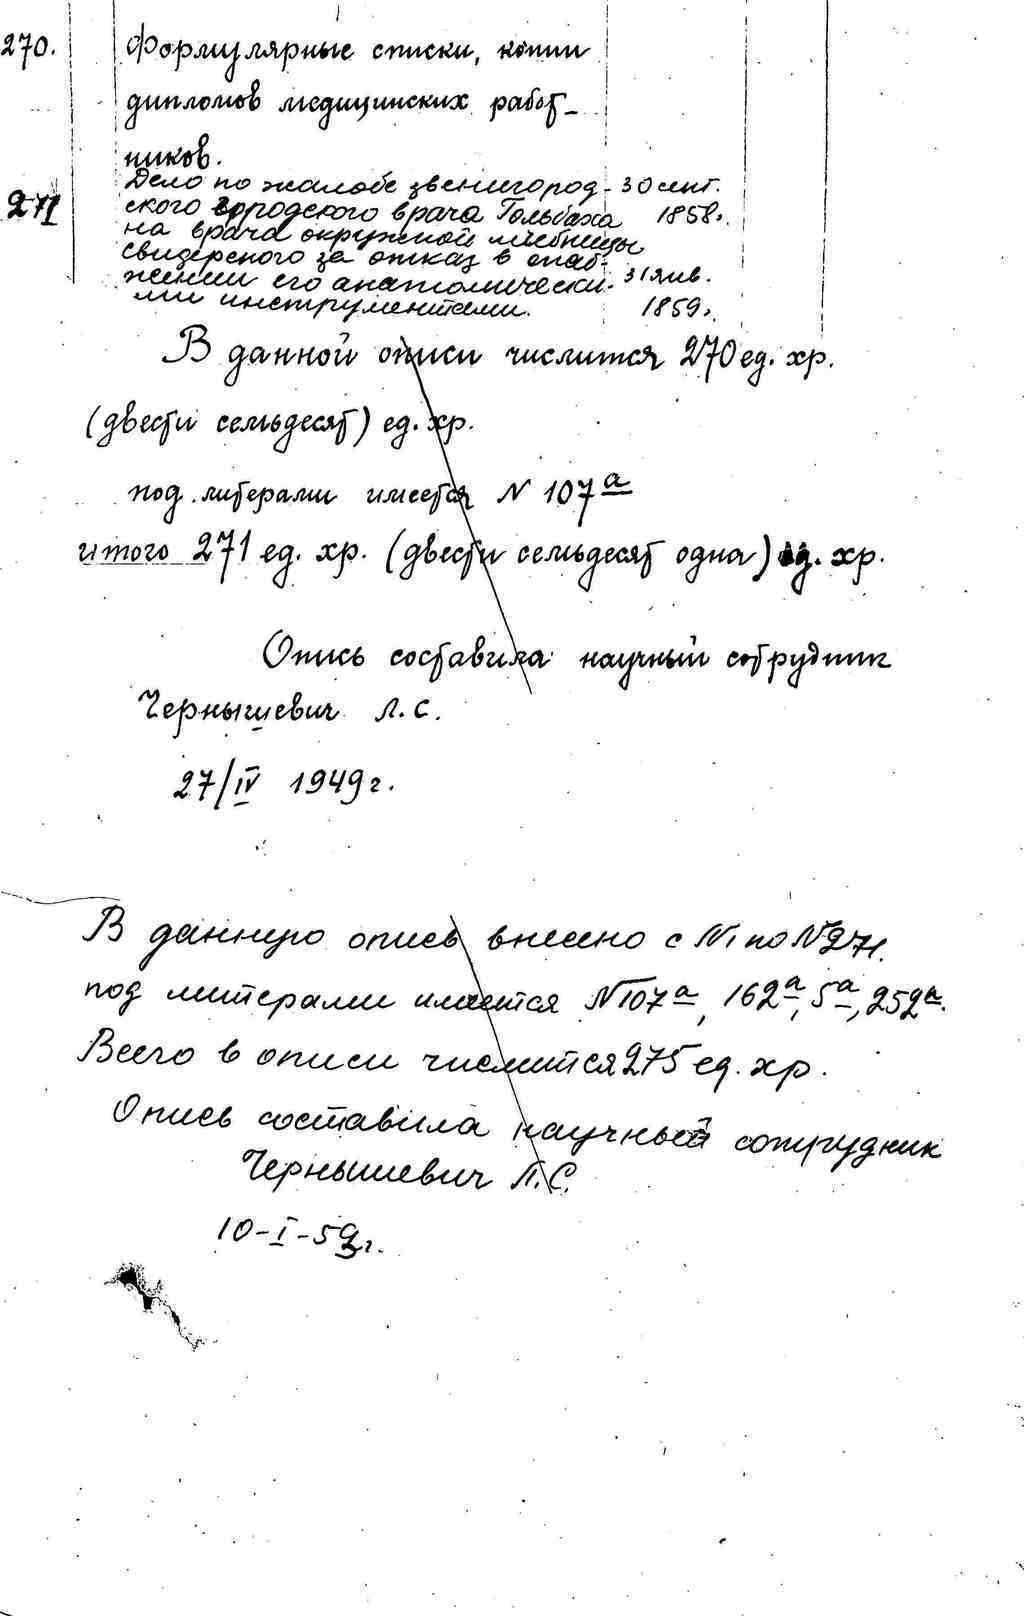 270. Формулярные списки, копии
дипломов медицинских работ-
ников.
271 Дело по жалобе звенигород- 30 сент.
ского городского врача Гольбаха 1858г.
на врача окружной лечебницы
Свидерского за отказ в снаб-
жении его анатомически- 31 янв.
ми инструментами. 1859г.
В данной описи числится 270 ед. хр.
(двести семьдесят) ед. хр.
под литерами имеется N 107а
итого 271 ед. хр. (двести семьдесят одна) ед. хр.
Опись составила научный сотрудник
Чернышевич Л.С.
27/IV 1949 г.
В данную опись внесено с N1 по N271.
под литерами имеется N107а, 162а, 5а, 252а.
Всего в описи числится 275 ед. хр.
Опись составила научный сотрудник
Чернышевич Л.С.
10-I-59г.